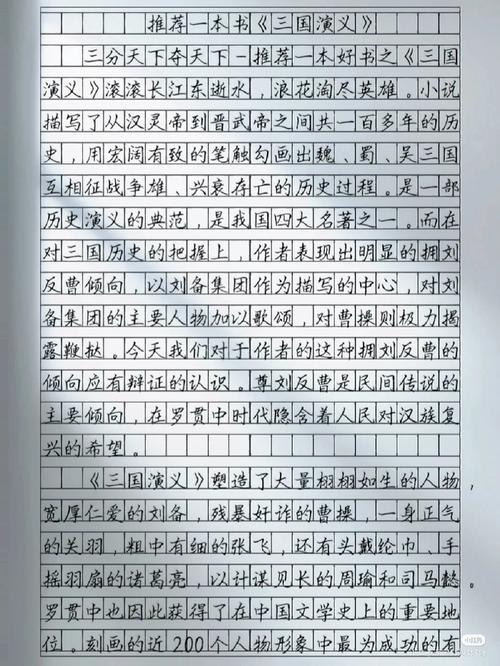 推荐一本书《三国演义》
三分天下夺天下-推荐一本好书之《三国
演义》滚滚长江东逝水，浪花淘尽英雄。小说
描写了从汉灵帝到晋武帝之间共一百多年的历
史，用宏阔有致的笔触勾画出魏、蜀、吴三国
互相征战争雄、兴衰存亡的历史过程。是一部
历史演义的典范，是我国四大名著之一。而在
对三国历史的把握上，作者表现出明显的拥刘
反曹倾向，以刘备集团作为描写的中心，对刘
备集团的主要人物加以歌颂，对曹操则极力揭
露鞭挞。今天我们对于作者的这种拥刘反曹的
倾向应有辩证的认识。尊刘反曹是民间传说的
主要倾向，在罗贯中时代隐含着人民对汉族复
兴的希望。
《三国演义》塑造了大量栩栩如生的人物，
宽厚仁爱的刘备，残暴奸诈的曹操，一身正气
的关羽，粗中有细的张飞，还有头戴纶巾、手
摇羽扇的诸葛亮，以计谋见长的周瑜和司马懿。
罗贯中也因此获得了在中国文学史上的重要地
位。刻画的近200个人物形象中最为成功的有
小红书